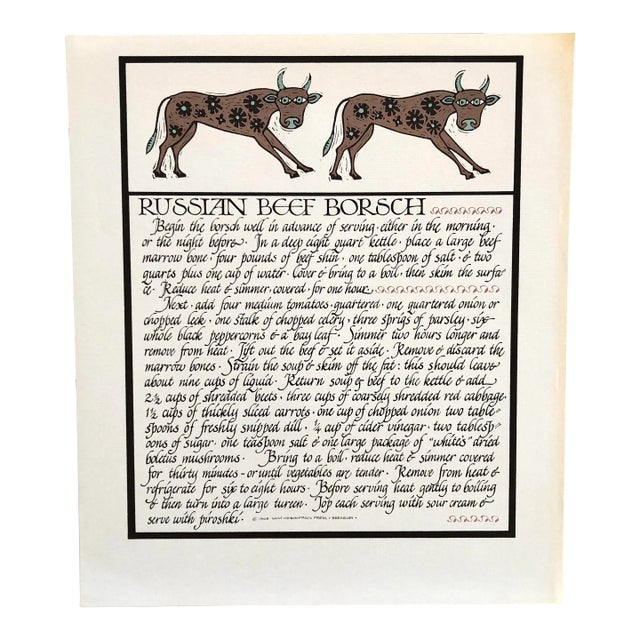 RUSSIAN BEEF BORSCH
Begin the borsch well in advance of serving · either in the morning ·
or the night before · In a deep eight quart kettle · place a large beef
marrow bone · four pounds of beef shin · one tablespoon of salt · & two
quarts plus one cup of water · Cover & bring to a boil · then skim the surfa
ce · Reduce heat & simmer · covered · for one hour
Next · add four medium tomatoes · quartered · one quartered onion or
chopped leek · one stalk of chopped celery · three sprigs of parsley · six
whole black peppercorns & a bay leaf · Simmer two hours longer and
remove from heat · Lift out the beef & set it aside · Remove & discard the
marrow bones · Strain the soup & skim off the fat : this should leave
about nine cups of liquid · Return soup & beef to the kettle & add
2½ cups of shredded beets, three cups of coarsely shredded red cabbage ·
1½ cups of thickly sliced carrots, one cup of chopped onion two table-
spoons of freshly snipped dill · ¼ cup of cider vinegar · two tablesp-
oons of sugar · one teaspoon salt & one large package of "white" dried
boletus mushrooms · Bring to a boil · reduce heat & simmer covered
for thirty minutes - or until vegetables are tender · Remove from heat &
refrigerate for six to eight hours · Before serving heat gently to boiling
& then turn into a large tureen · Top each serving with sour cream &
serve with piroshki ·
© PRESS · BERKELEY ·